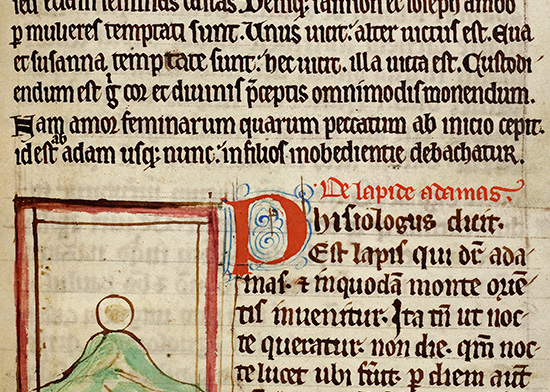 sed etiam feminas castas. Deniq; samson et ioseph ambo
p mulieres temptati sunt. Unus uicit. alter uictus est. Eua
et susanna temptate sunt. hec uicit. illa uicta est. Custodi
endum est g̃ cor et diuinis p̃ceptis omnimodis monendum.
Nam amor feminarum quarum peccatum ab initio cepit.
id est ab adam usq; nunc. in filios inobedientie debachatur.
De lapide adamas.
Phisiologus dicit.
Est lapis qui dr̃ ada
mas. ⁊ in quodã monte oriẽ
tis inuenitur. Ita tñ ut noc
te queratur. non die. qm̃ noc
te lucet ubi fũit. p diem aũt